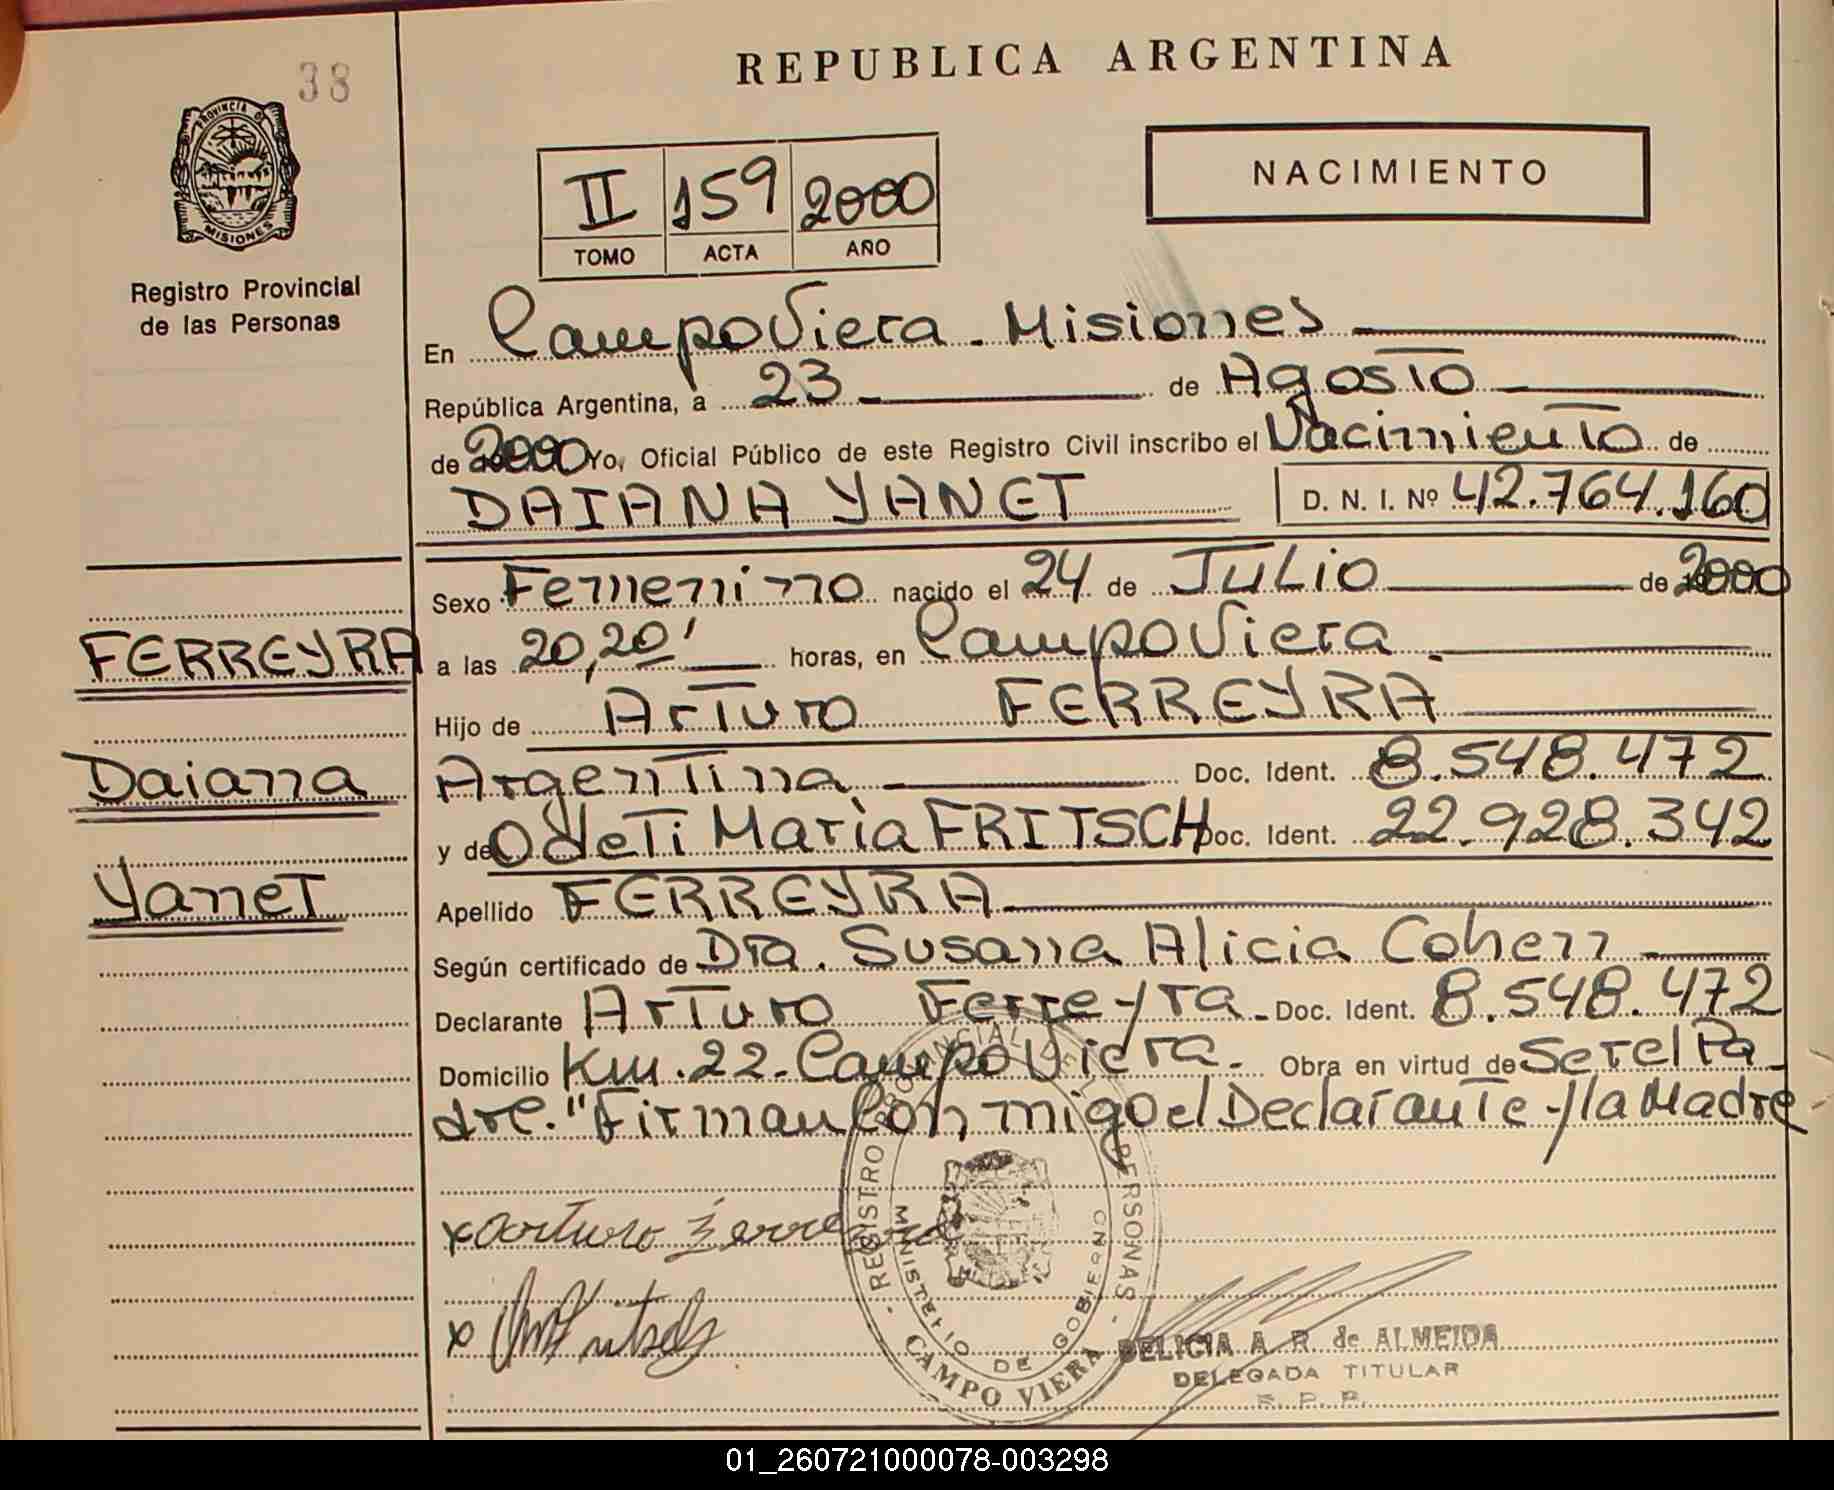 38
REPUBLICA ARGENTINA
PROVINCIA DE
MISIONES
Registro Provincial
de las Personas
II 159 2000
TOMO ACTA AÑO
NACIMIENTO
En Campo Viera - Misiones
República Argentina, a 23 de Agosto
de 2000 Yo, Oficial Público de este Registro Civil inscribo el Nacimiento de
DAIANA YANET D. N. I. Nº 42.764.160
Sexo Femenino nacido el 24 de Julio de 2000
FERREYRA
a las 20,20' horas, en Campo Viera.
Hijo de Arturo FERREYRA
Daiana
Argentina Doc. Ident. 8.548.472
y de Odeti Maria FRITSCH Doc. Ident. 22.928.342
Yanet
Apellido FERREYRA
Según certificado de Dra. Susana Alicia Cohen
Declarante Arturo Ferreyra - Doc. Ident. 8.548.472
Domicilio Km. 22 - Campo Viera - Obra en virtud de Ser el Pa-
dre. "Firman Con migo el Declarante y la Madre
x Arturo Ferreyra
x OMFritsch
- REGISTRO PROVINCIAL DE LAS PERSONAS -
MINISTERIO DE GOBIERNO
CAMPO VIERA
DELICIA A. R. de ALMEIDA
DELEGADA TITULAR
R. P. P.
01_260721000078-003298